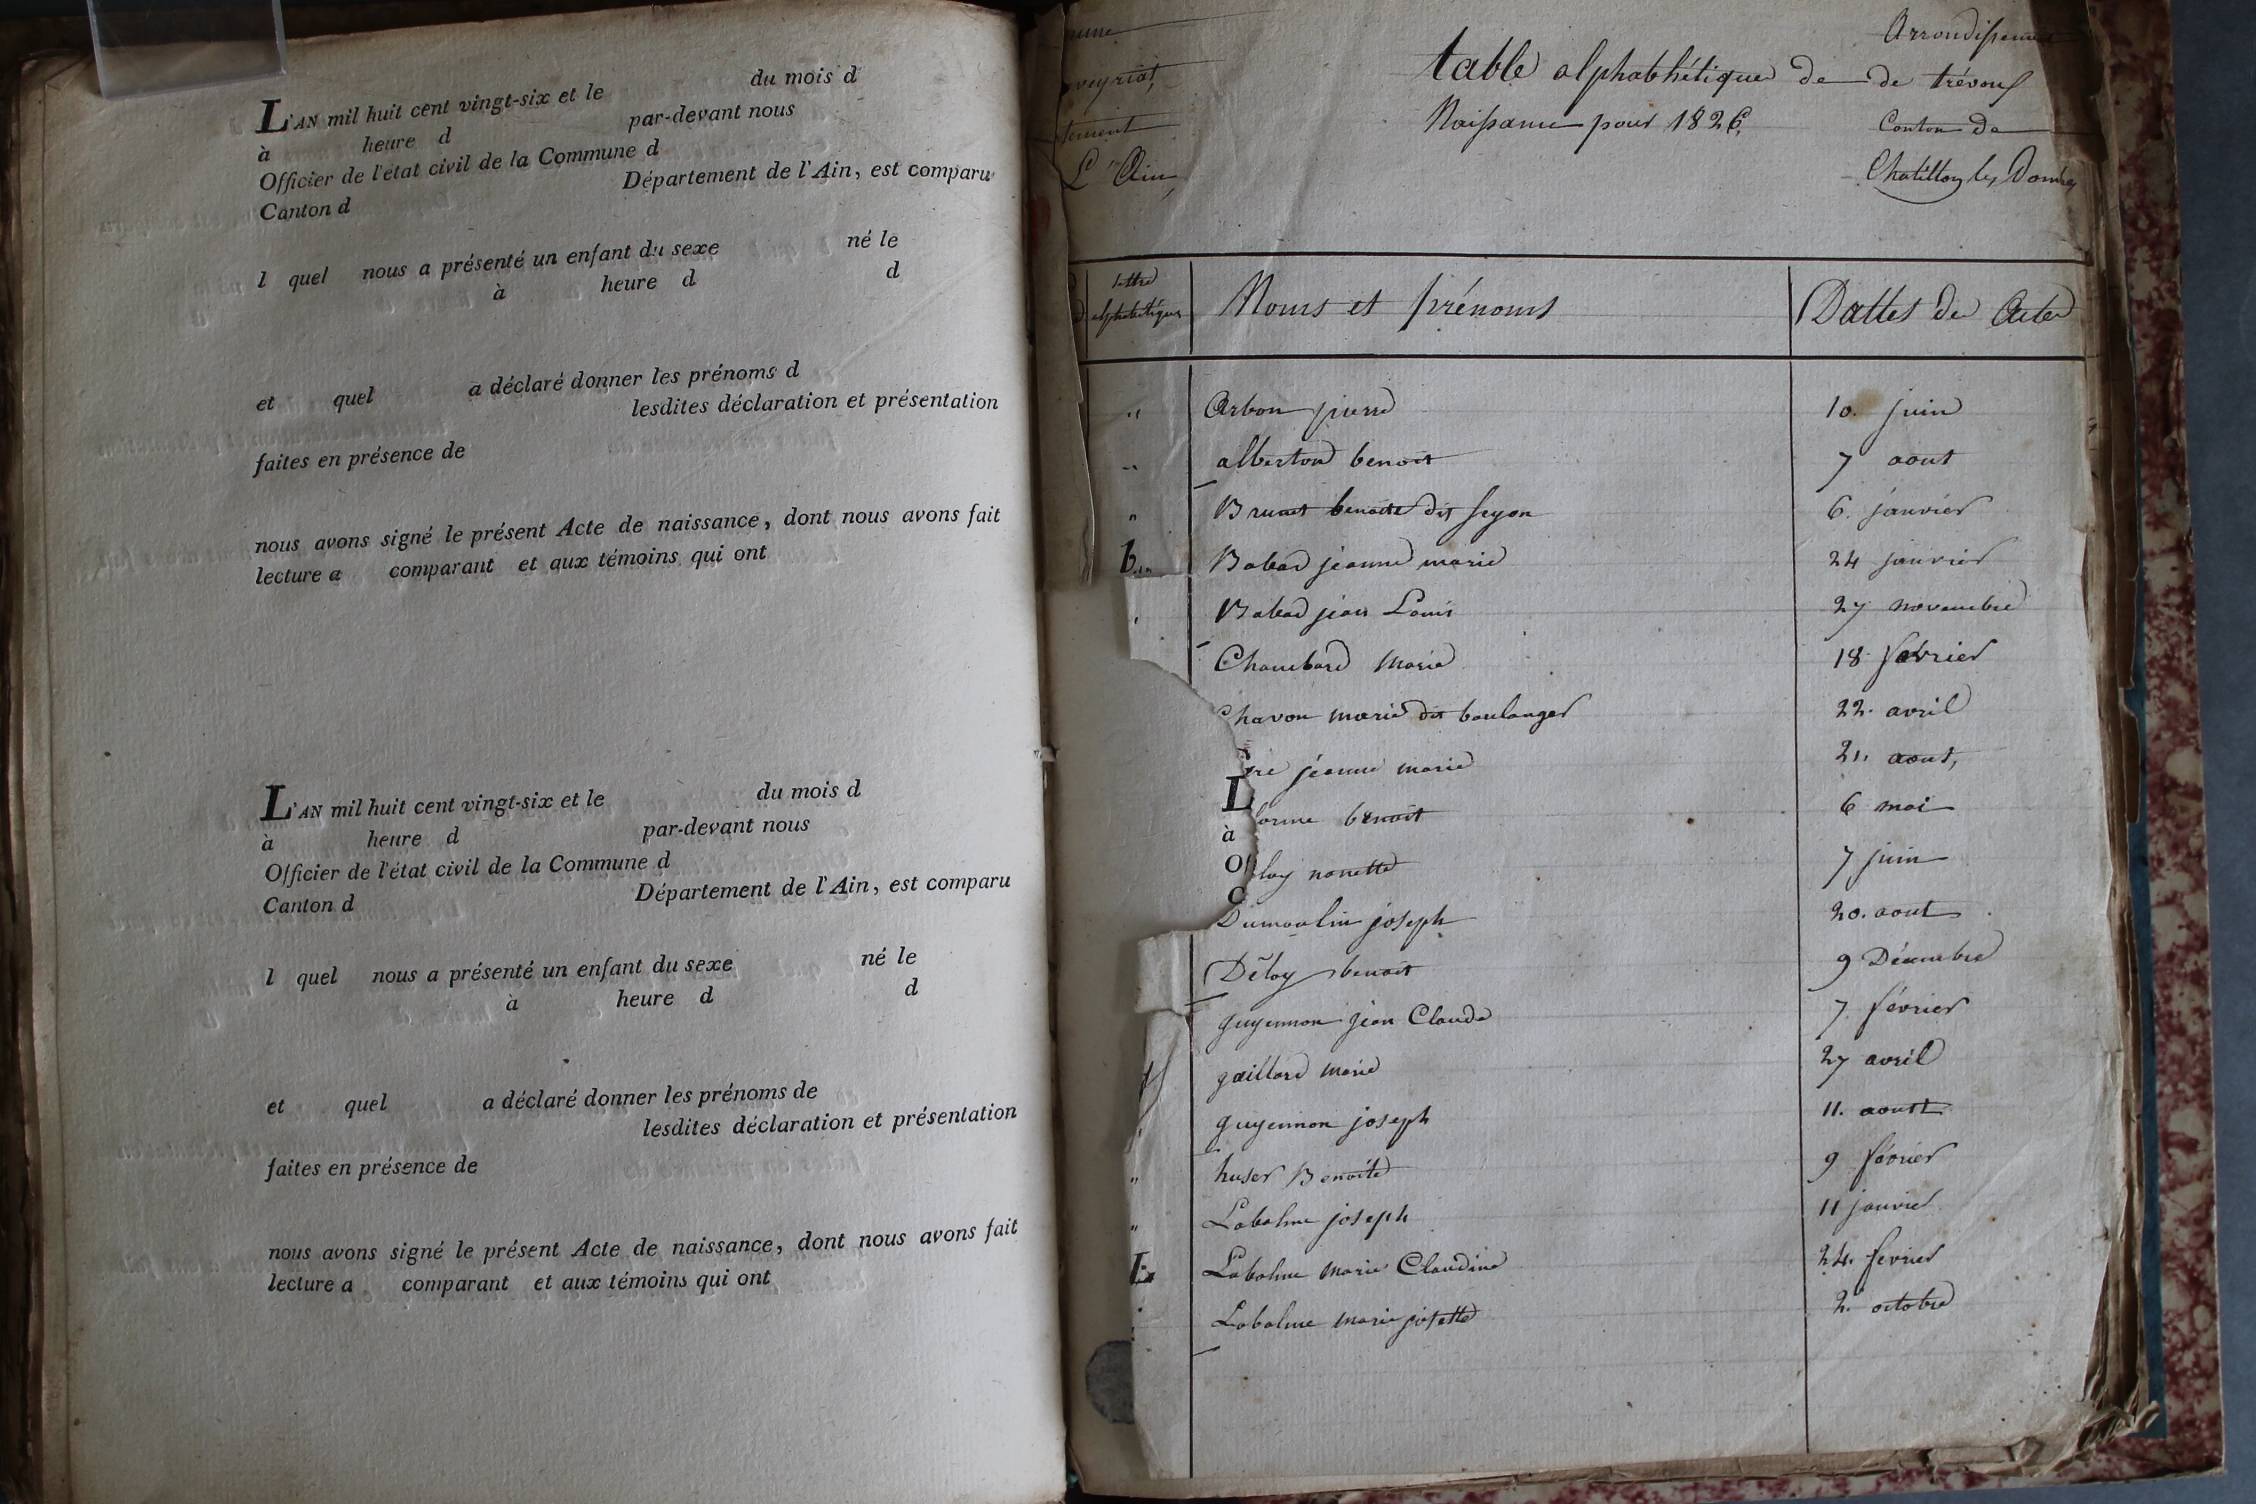 du mois d
L'AN mil huit cent vingt-six et le
par-devant nous
à heure d
Officier de l'état civil de la Commune d
Département de l'Ain, est comparu
Canton d
né le
l quel nous a présenté un enfant du sexe
à heure d d
a déclaré donner les prénoms d
et quel
lesdites déclaration et présentation
faites en présence de
nous avons signé le présent Acte de naissance, dont nous avons fait
lecture a comparant et aux témoins qui ont
L'AN mil huit cent vingt-six et le du mois d
à heure d par-devant nous
Officier de l'état civil de la Commune d
Canton d Département de l'Ain, est comparu
l quel nous a présenté un enfant du sexe né le
à heure d d
et quel a déclaré donner les prénoms de
lesdites déclaration et présentation
faites en présence de
nous avons signé le présent Acte de naissance, dont nous avons fait
lecture a comparant et aux témoins qui ont
Arrondissement
table alphabhétique de de trévoux
Naissance pour 1826.
Canton de
L'Ain, Chatillon les Dombes
lettre
alphabétique Noms et prénoms Dattes de Actes
Arbon pierre 10. juin
alberton benoit 7 aout
Brunet benoite dit feyon 6. janvier
b Babad jeanne marie 24 janvier
Babad jean Louis 27 novembre
Chambard Marie 18 février
Chavon marie dit boulanger 22. avril
jeanne marie 21. aout,
L
orme benoit 6 mai
à
loy nanette 7 juin
O
C
Dumoulin joseph 20. aout
Déloy benoit 9 Décembre
guyennon jean Claude 7 février
gaillard marie 27 avril
guyennon joseph 11. aoust
huser Benoîte 9 février
Labalme joseph 11 janvier
L Labalme marie Claudine 24. fevrier
Labalme marie josette 2. octobre